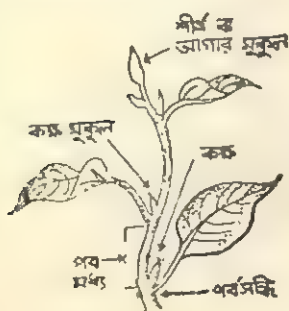 শীর্ষ বা
আগার মুকুল
কক্ষ মুকুল
কক্ষ
পর্ব
মধ্য
পর্বসন্ধি